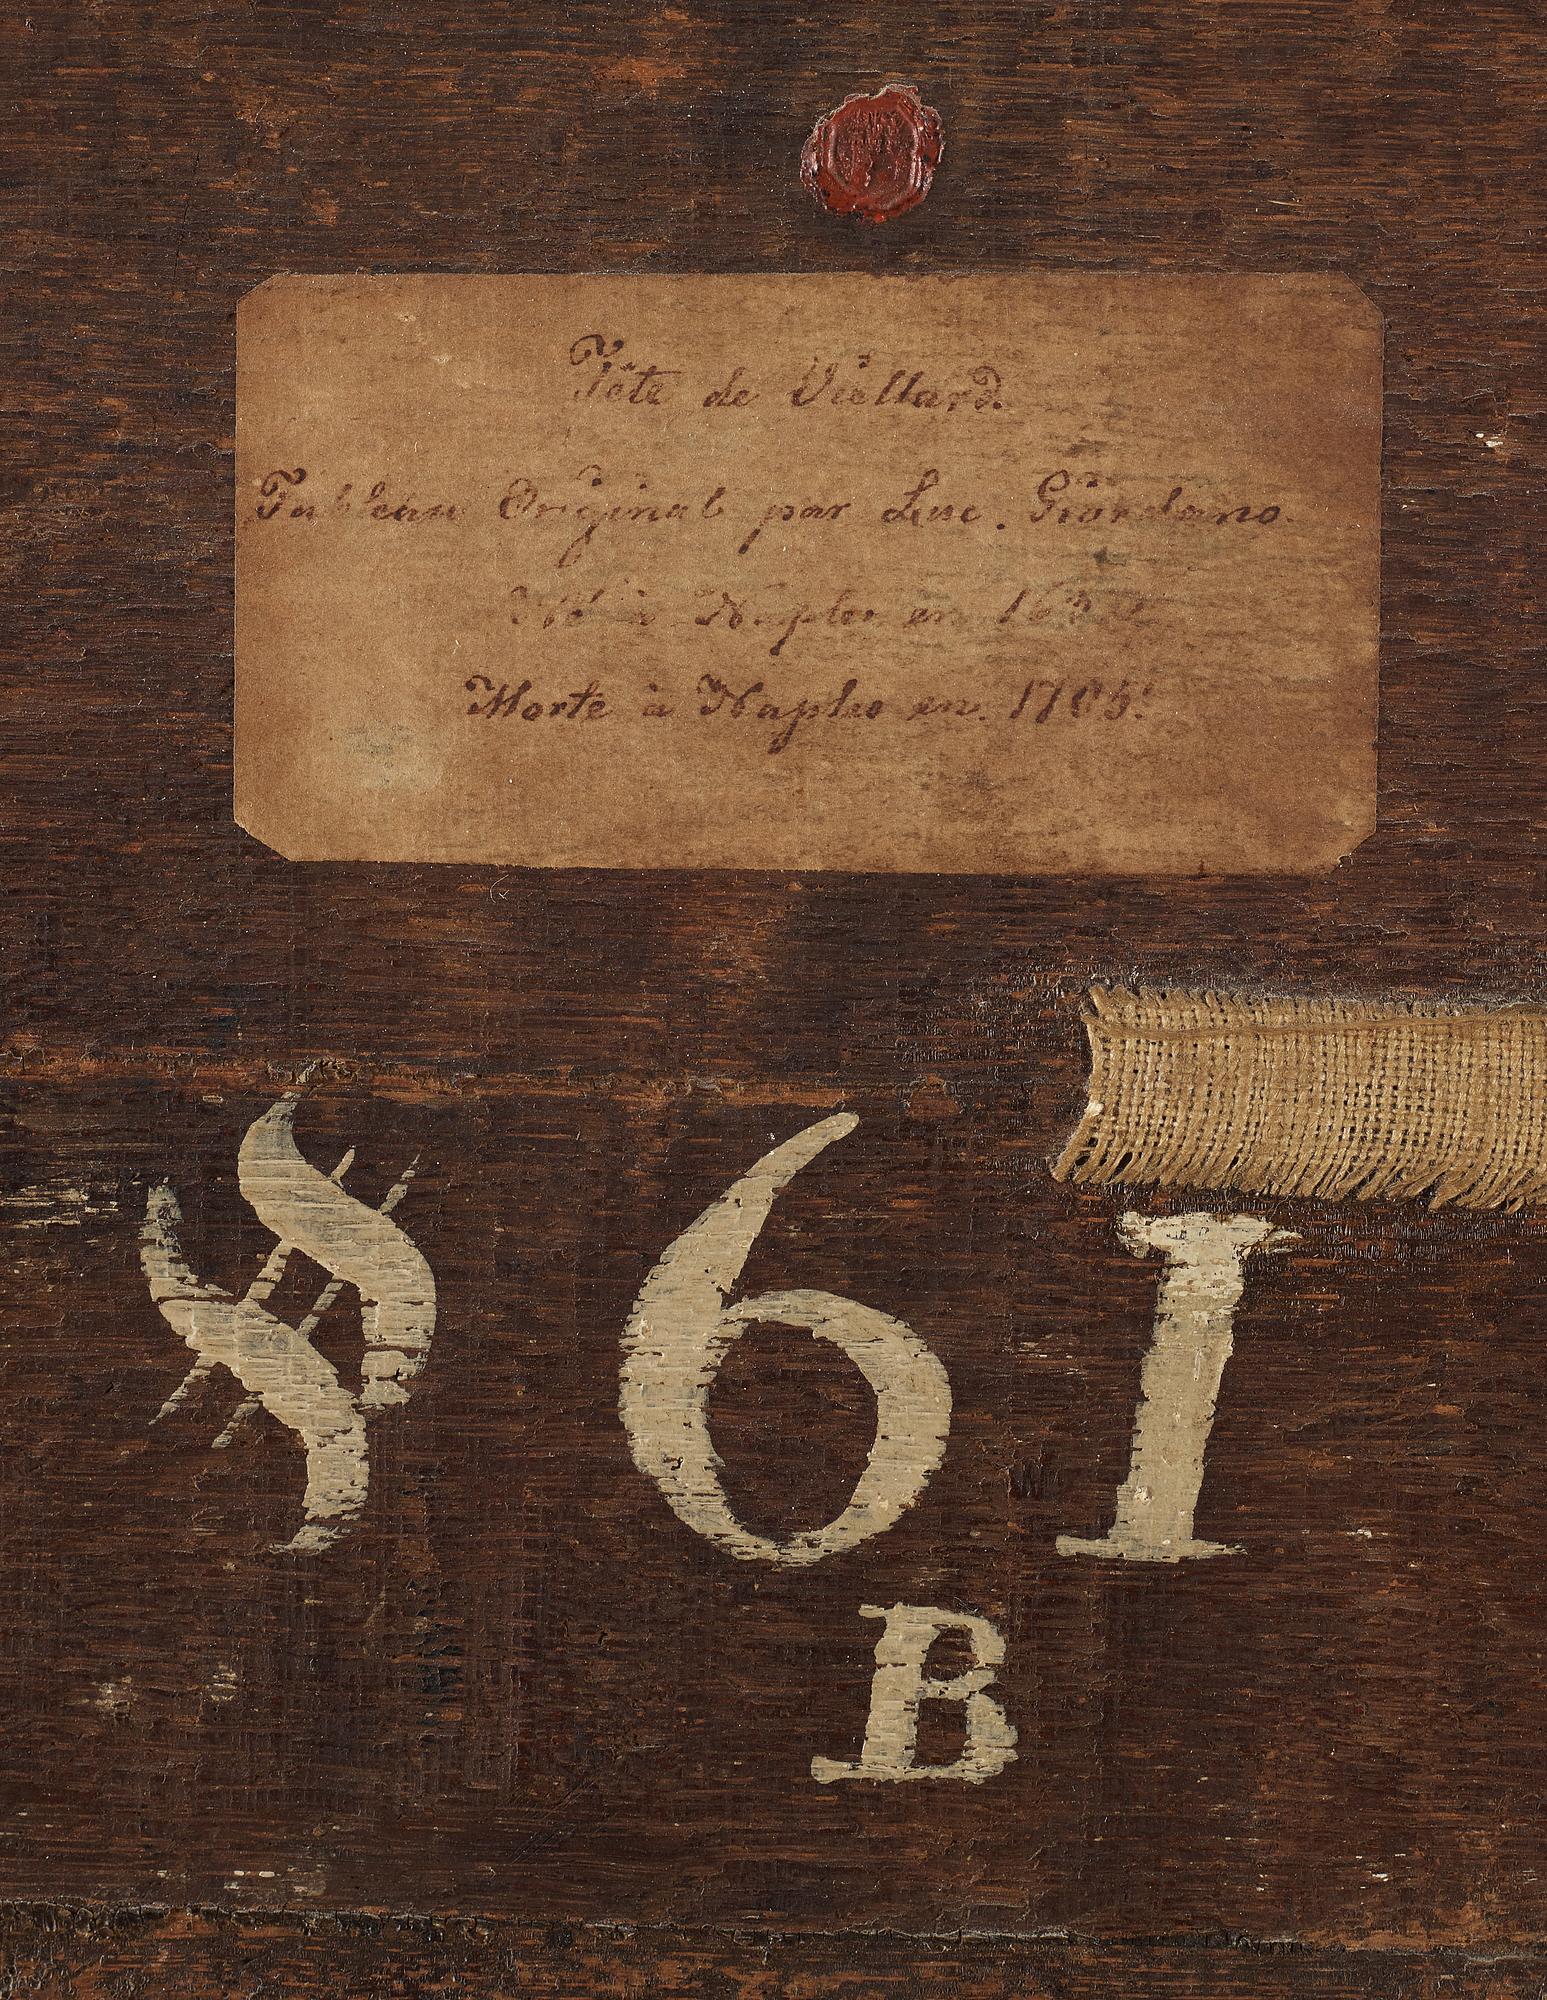 Tête de Viellard.
Tableau Original par Luc. Giordano.
Né à Naples en 163
Morte à Naples en. 1705.
61
B